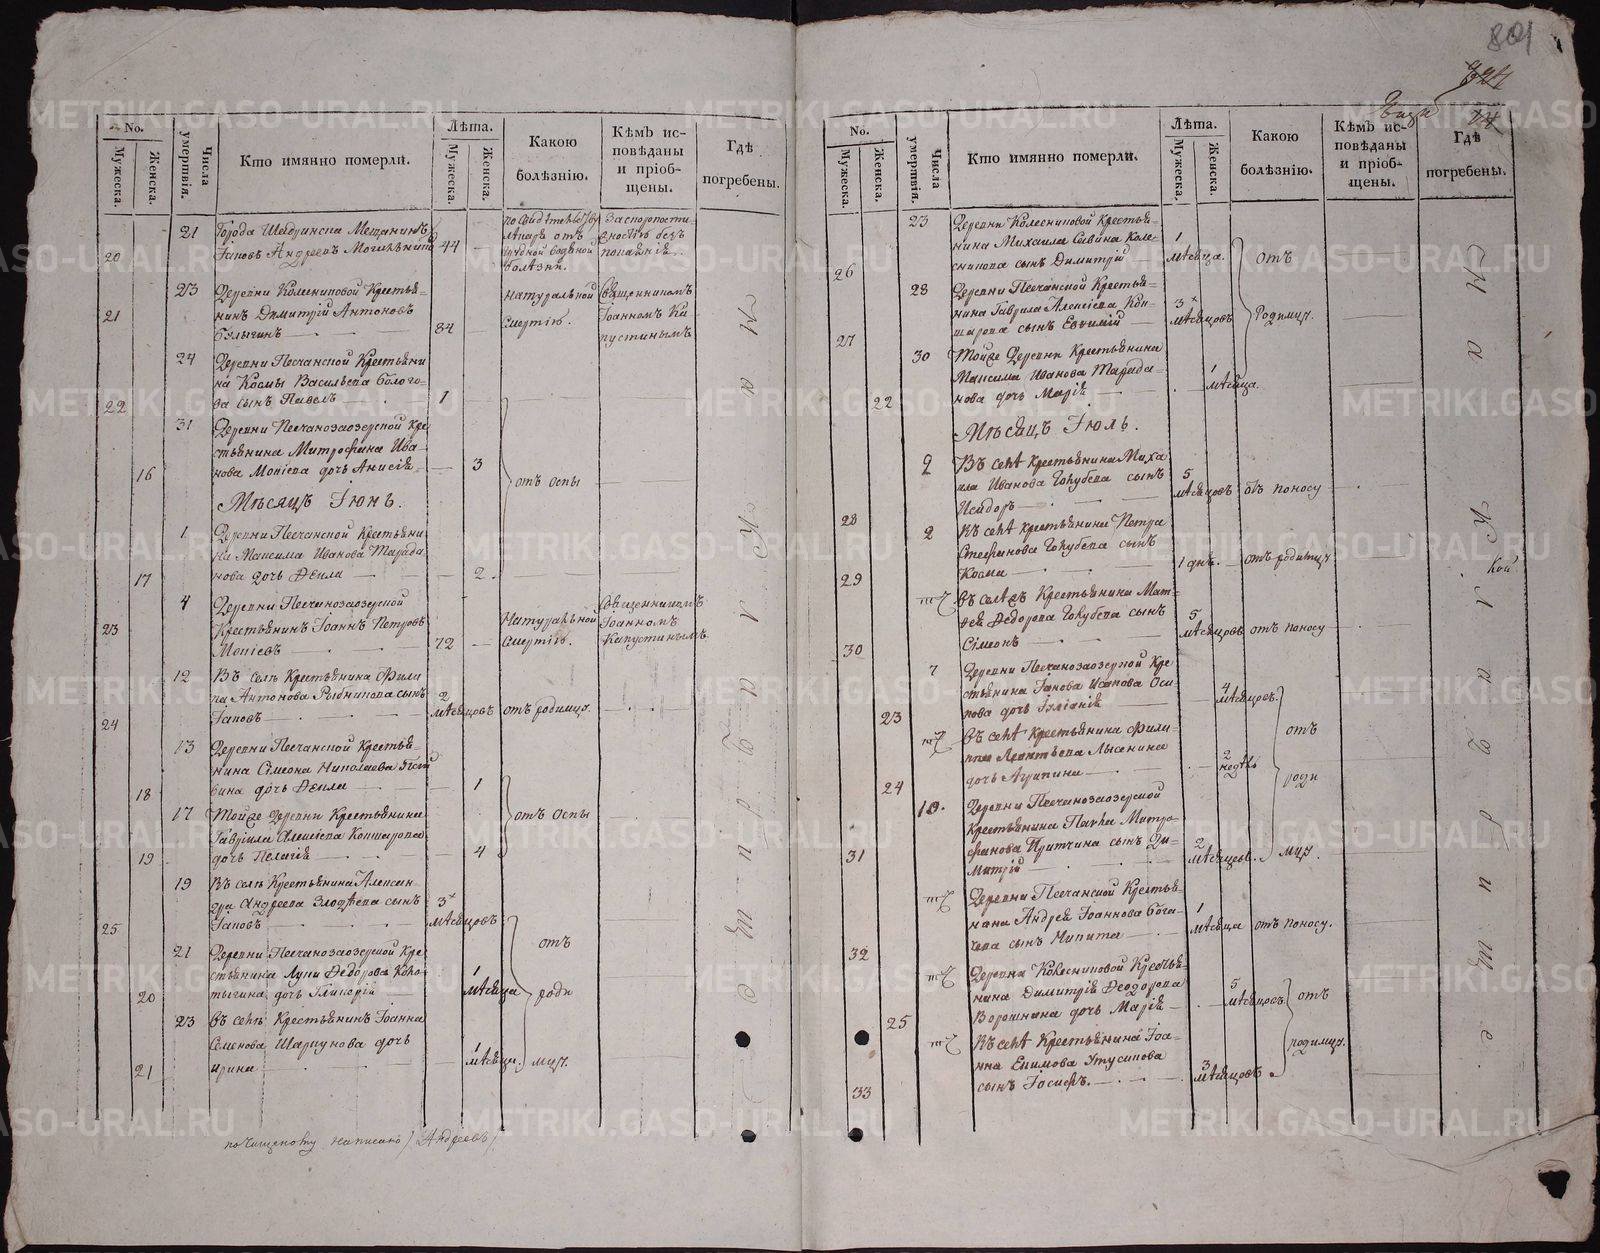 801
324
No.
Мужеска.
Женска.
Числа умертвія.
Кто имянно померли.
Лѣта.
Мужеска.
Женска.
Какою болѣзнію.
Кѣмъ исповѣданы и пріобщены.
Гдѣ погребены.
20
21
Города Шадринска Мещанинъ
Іаковъ Андреевъ
44
болѣзни.
21
23
Деревни Колесниковой Крестья=
нинъ Димитрій Антоновъ
Булыгинъ
84
Натуральной
Смертію.
Священникомъ
Іоанномъ Ка
пустинымъ
22
24
Деревни Песчанской Крестьяни
на Космы ВасильеваБолото=
ва сынъ Павелъ
1
16
31
Деревни Песчанозаозерской Кре
стьянина Митрофана Ива=
нова Мопсева дочь Анисія
3
отъ оспы
Мѣсяцъ Іюнь.
17
1
Деревни Песчанской Крестьяни
на Максима Иванова Тарада
нова дочь Ѳекла
2.
23
4
Деревни Песчанозаозерской
Крестьянинъ Іоаннъ Петровъ
72
Натуральной
Смертію.
Священникомъ
Іоанномъ
Капустинымъ
24
12
Въ селѣ Крестьянина Фили
па Антонова Рыбникова сынъ
Іаковъ
2
мѣсяцовъ
отъ родимца.
18
13
Деревни Песчанской Крестья=
нина Сімеона Николаева
дочь Ѳекла
1
отъ Оспы
19
17
Тойже Деревни Крестьянина
Гавріила Алексіева Коншарова
дочь Пелагія
4
25
19
Въ селѣ Крестьянина Алексан=
дра Андреева сынъ
Іаковъ
3
мѣсяцовъ
отъ
роди
мца.
20
21
Деревни Песчанозаозерской Кре
стьянина Луки Ѳедорова
дочь Гликерія
1
мѣсяца
21
23
въ селѣ Крестьянинъ Іоанна
Семенова Шаркунова дочь
ирина
1
мѣсяца.
Андреевъ
На Кладбище
No.
Мужеска.
Женска.
Числа умертвія.
Кто имянно померли.
Лѣта.
Мужеска.
Женска.
Какою болѣзнію.
Кѣмъ исповѣданы и пріобщены.
Гдѣ погребены.
26
23
Деревни Колесниковой Крестья=
нина Михаила Савина Коле=
сникова сынъ Димитрій
1
мѣсяца.
отъ
Родимца.
27
28
Деревни Песчанской Крестья=
нина Гаврила Алексіева Кон=
шарова сынъ Евѳимій
3
мѣсяцовъ
22
30
Тойже Деревни Крестьянина
Максима Иванова Тарада=
нова дочь Марія
1
мѣсяца.
Мѣсяцъ Іюль.
28
2
Въ селѣ Крестьянина Миха
ила Иванова Голубева сынъ
Исидоръ
5
мѣсяцовъ
отъ поносу
29
2
Въ селѣ Крестьянина Петра
Стефанова Голубева сынъ
Косма
1 днь.
отъ родимца
30
въ селѣ Крестьянина Мат=
ѳея Ѳедорова Голубева сынъ
Сімеонъ
5
мѣсяцовъ
отъ поносу
23
7
Деревни Песчанозаозерской Кре
стьянина Іакова Исакова Оси=
пова дочь Іуліанія
4
мѣсяцовъ.
отъ
роди
мца.
24
въ селѣ Крестьянина Фили=
ппа Леонтьева Лысенина
дочь Агрипина
2
недѣли
31
10.
Деревни Песчанозаозерской
Крестьянина Павла Митро=
фанова Притчина сынъ Ди=
митрій
2
мѣсяцовъ.
32
Деревни Песчанской Крестья=
нина Андрея Іоаннова Бога=
сынъ Никита
1
мѣсяца
отъ поносу.
25
Деревни Колесниковой Крестья=
нина Димитрія Ѳеодорова
Ворошнина дочь Марія
5
мѣсяцовъ
отъ
родимца.
33
Въ селѣ Крестьянина Іоа=
нна Екимова Утусикова
сынъ Іосифъ.
3
мѣсяцовъ
На Кладбище.
METRIKI.GASO-URAL.RU